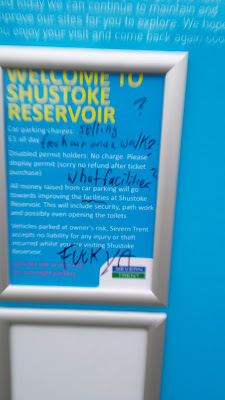 today we can continue to maintain and
improve our sites for you to explore. We hope
you enjoy your visit and come back again soon
WELCOME TO
SHUSTOKE
RESERVOIR
?
Car parking charges selling
£5 all day
walk?
Disabled permit holders: No charge. Please
display permit (sorry no refund after ticket
purchase)
what facilities?
All money raised from car parking will go
towards improving the facilities at Shustoke
Reservoir. This will include security, path work
and possibly even opening the toilets
Vehicles parked at owner's risk, Severn Trent
accepts no liability for any injury or theft
incurred whilst you're visiting Shustoke
Reservoir.
FUCK YA
SEVERN
TRENT